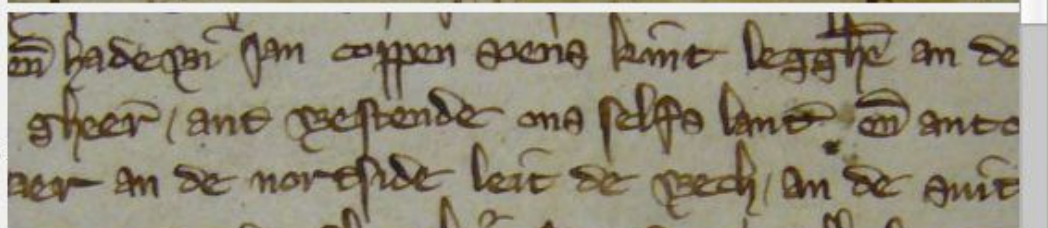 en̄ hadewi Jan coppen soens kint legghē an de
gheer̄ / ant westende ons selfs lant en̄ anto
aer an de nortside leit de wech / an de suit